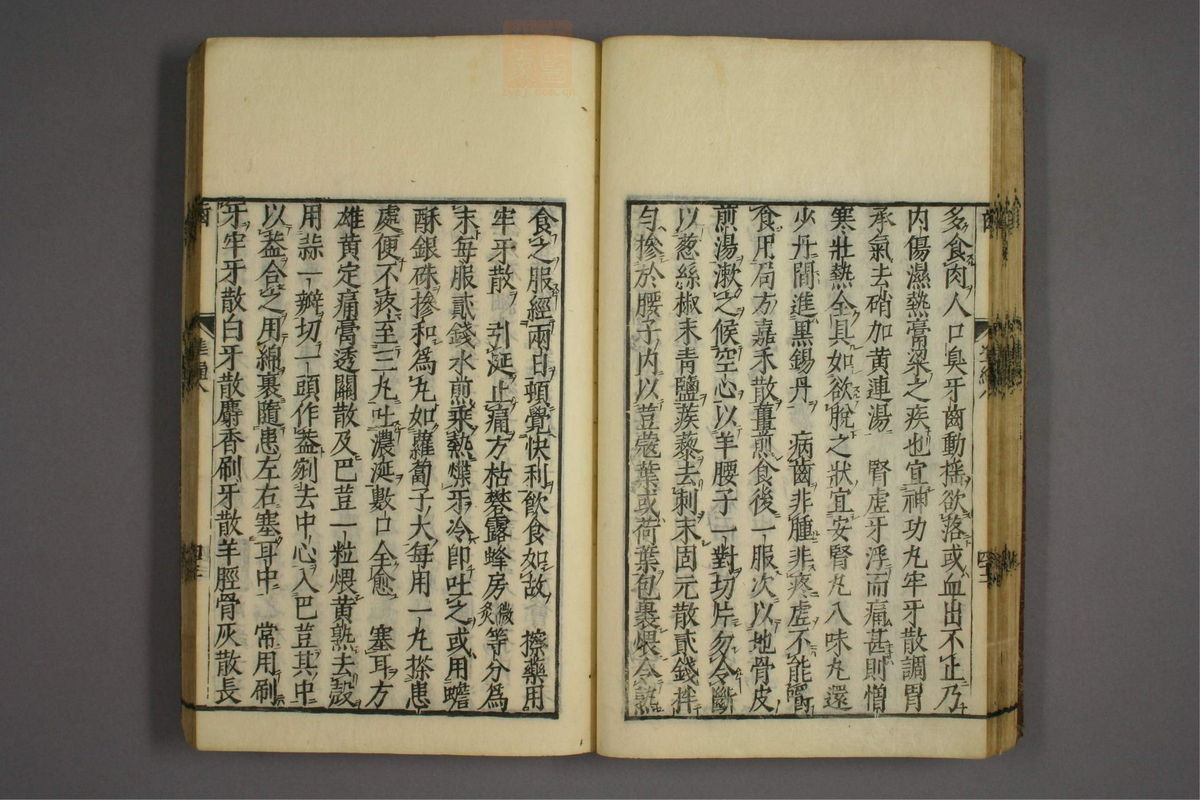 多食肉人口臭牙齒動揺欲落或血出不止乃
内傷濕熱膏粱之疾也宜神功丸牢牙散調胃
承氣去硝加黄連湯　腎虚牙浮而痛甚則憎
寒壯熱全具如欲脫之狀宜安腎丸八味丸還
少丹間進黒錫丹　病齒非腫非疼虚不能嚼
食用局方嘉禾散薑煎食後一服次以地骨皮
煎湯漱之候空心以羊腰子一對切片勿令斷
以葱絲椒末青鹽蒺藜去刺末固元散貳錢拌
匀摻於腰子内以荳蔻葉或荷葉包裹煨令熟
食之服經兩日頓覺快利飲食如故　擦藥用
牢牙散　引涎止痛方枯礬露蜂房微炙等分為
末每服貳錢水煎乘熱煠牙冷即吐之或用蟾
酥銀硃摻和為丸如蘿蔔子大每用一丸搽患
處便不疼至三丸吐濃涎數口全愈　塞耳方
雄黄定痛膏透關散及巴荳一粒煨黄熟去殻
用蒜一瓣切一頭作葢剜去中心入巴荳其中
以葢合之用綿裹隨患左右塞耳中　常用刷
牙牢牙散白牙散麝香刷牙散羊脛骨灰散長